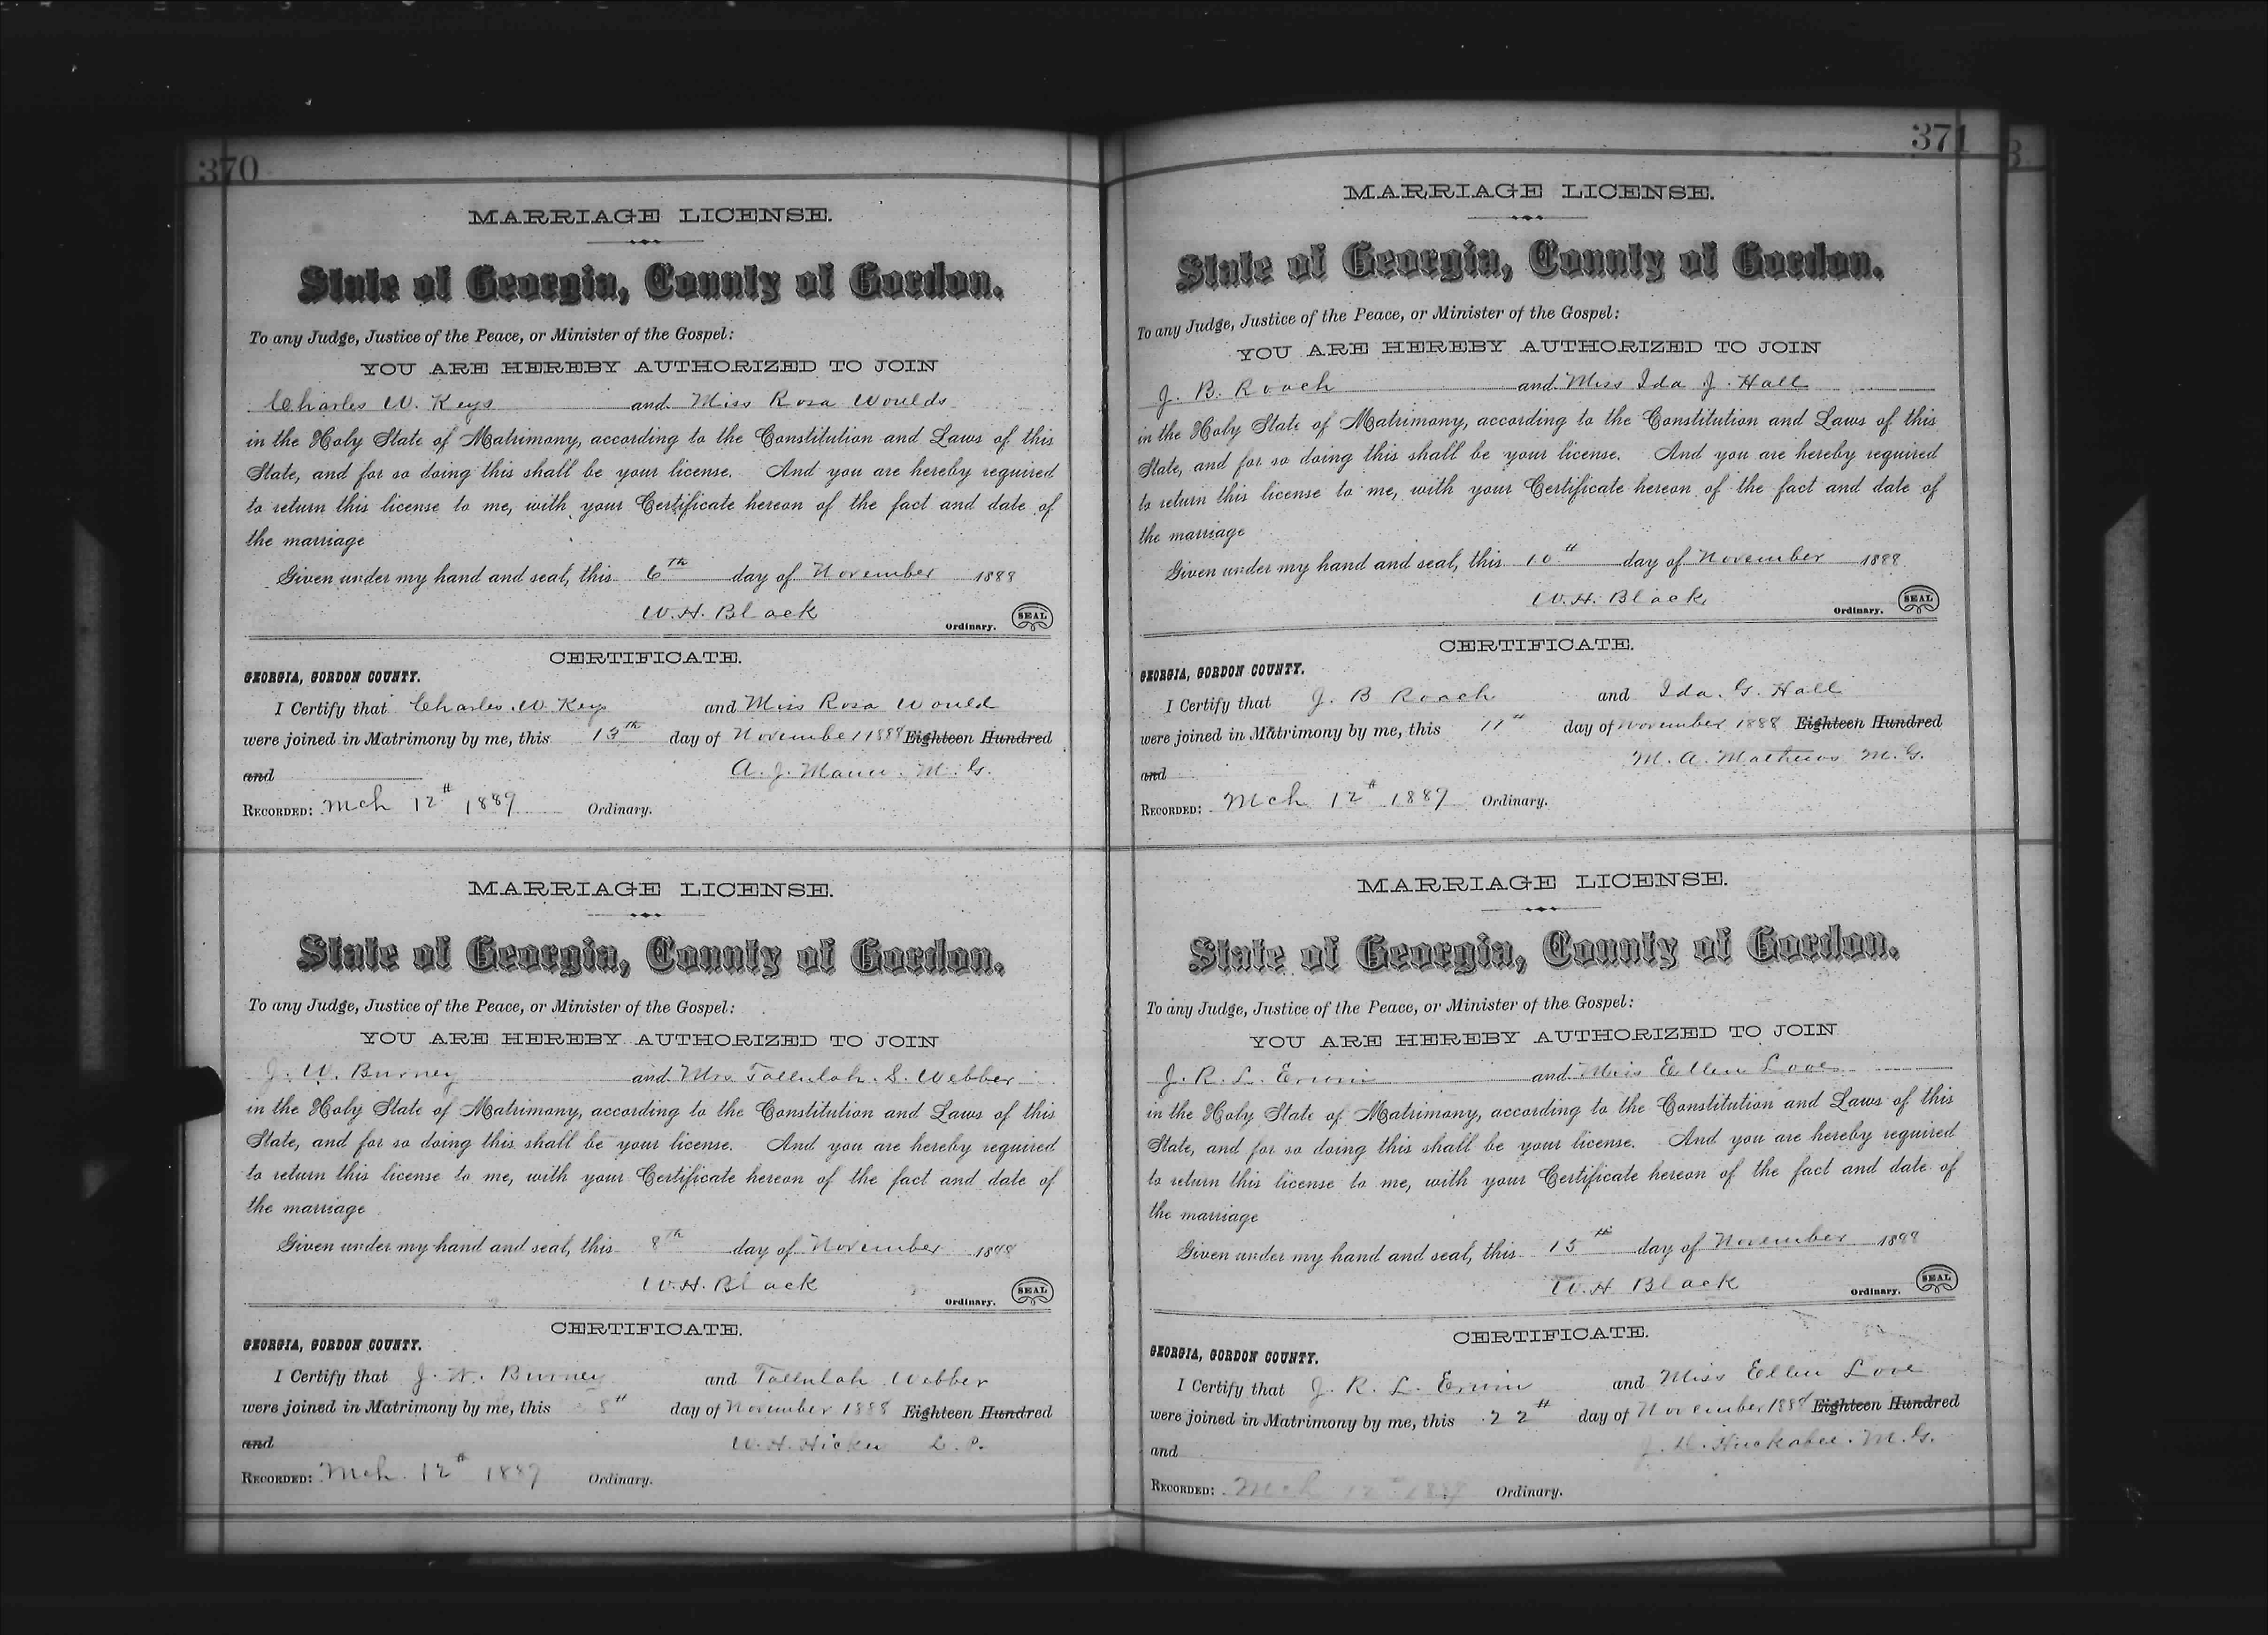 370
MARRIAGE LICENSE.
State of Georgia, County of Gordon.
To any Judge, Justice of the Peace, or Minister of the Gospel:
YOU ARE HEREBY AUTHORIZED TO JOIN
Charles W. Keys and Miss Rosa Woulds
in the Holy State of Matrimony, according to the Constitution and Laws of this
State, and for so doing this shall be your license. And you are hereby required
to return this license to me, with your Certificate hereon of the fact and date of
the marriage
Given under my hand and seal, this 6th day of November 1888
W. H. Black
Ordinary. SEAL
CERTIFICATE.
GEORGIA, GORDON COUNTY.
I Certify that Charles W Keys and Miss Rosa Would
were joined in Matrimony by me, this 13th day of November 1888 Eighteen Hundred
and A. J. Mann. M. G.
RECORDED: Mch 12th 1889 Ordinary.
MARRIAGE LICENSE.
State of Georgia, County of Gordon.
To any Judge, Justice of the Peace, or Minister of the Gospel:
YOU ARE HEREBY AUTHORIZED TO JOIN
J. W. Burney and Mrs Tallulah. S. Webber
in the Holy State of Matrimony, according to the Constitution and Laws of this
State, and for so doing this shall be your license. And you are hereby required
to return this license to me, with your Certificate hereon of the fact and date of
the marriage
Given under my hand and seal, this 8th day of November 1888
W. H. Black
Ordinary. SEAL
CERTIFICATE.
GEORGIA, GORDON COUNTY.
I Certify that J. W. Burney and Tallulah Webber
were joined in Matrimony by me, this 8th day of November 1888 Eighteen Hundred
and W. H. L. P.
RECORDED: Mch. 12th 1889 Ordinary.
371
MARRIAGE LICENSE.
State of Georgia, County of Gordon.
To any Judge, Justice of the Peace, or Minister of the Gospel:
YOU ARE HEREBY AUTHORIZED TO JOIN
J. B. Roach and Miss Ida J. Hall
in the Holy State of Matrimony, according to the Constitution and Laws of this
State, and for so doing this shall be your license. And you are hereby required
to return this license to me, with your Certificate hereon of the fact and date of
the marriage
Given under my hand and seal, this 10th day of November 1888
W. H. Black
Ordinary. SEAL
CERTIFICATE.
GEORGIA, GORDON COUNTY.
I Certify that J. B Roach and Ida. G. Hall
were joined in Matrimony by me, this 11th day of November 1888 Eighteen Hundred
and M. A. Mathews M. G.
RECORDED: Mch 12th 1889 Ordinary.
MARRIAGE LICENSE.
State of Georgia, County of Gordon.
To any Judge, Justice of the Peace, or Minister of the Gospel:
YOU ARE HEREBY AUTHORIZED TO JOIN
J. R. L. Erwin and Miss Ellen Love
in the Holy State of Matrimony, according to the Constitution and Laws of this
State, and for so doing this shall be your license. And you are hereby required
to return this license to me, with your Certificate hereon of the fact and date of
the marriage
Given under my hand and seal, this 15th day of November 1888
W. H Black
Ordinary. SEAL
CERTIFICATE.
GEORGIA, GORDON COUNTY.
I Certify that J. R. L. Erwin and Miss Ellen Love
were joined in Matrimony by me, this 22th day of November 1888 Eighteen Hundred
and Huckabee. M. G.
RECORDED: Mch 12th 1889 Ordinary.